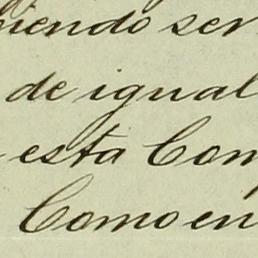 iendo ser
de igual
esta Com
Como en